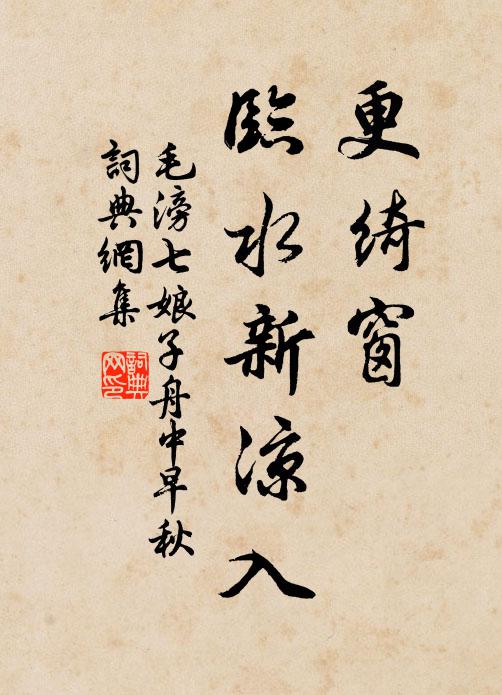 更綺窗
臨水新涼入
毛滂七娘子舟中早秋
詞典網集
詞典
网印